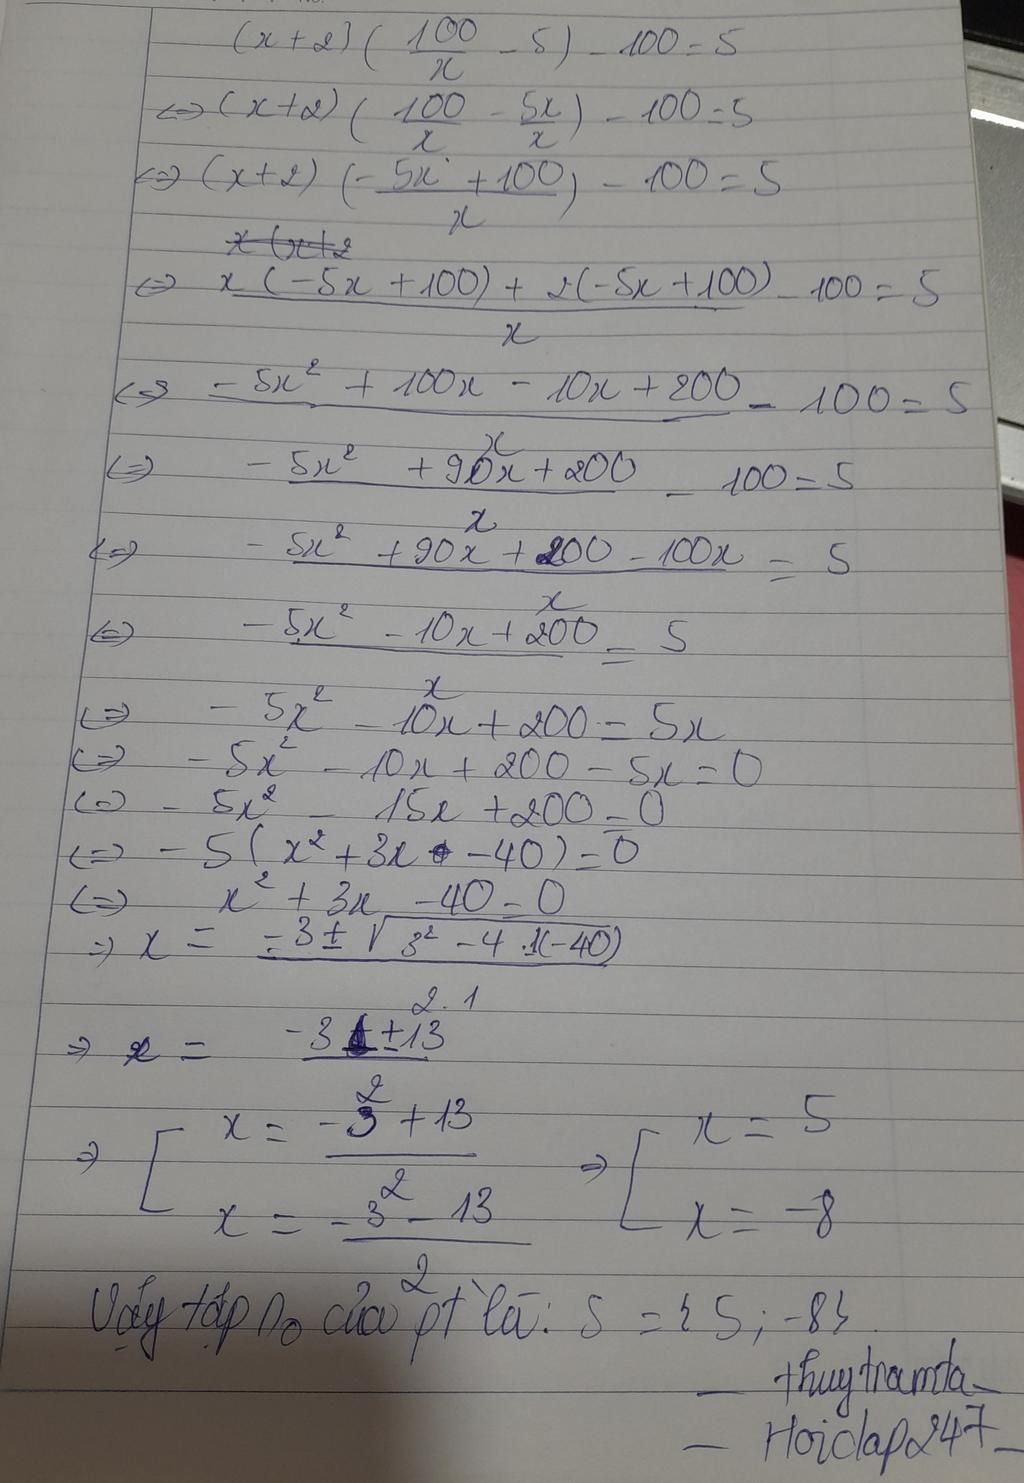 (x+2)(100/x - 5) - 100 = 5
⇔ (x+2)(100/x - 5x/x) - 100 = 5
⇔ (x+2)(-5x+100)/x - 100 = 5
x(x+2
⇔ x(-5x+100) + 2(-5x+100)/x - 100 = 5
⇔ -5x² + 100x - 10x + 200/x - 100 = 5
⇔ -5x² + 90x + 200/x - 100 = 5
⇔ -5x² + 90x + 200 - 100x/x = 5
⇔ -5x² - 10x + 200/x = 5
⇔ -5x² - 10x + 200 = 5x
⇔ -5x² - 10x + 200 - 5x = 0
⇔ -5x² - 15x + 200 = 0
⇔ -5(x² + 3x - 40) = 0
⇔ x² + 3x - 40 = 0
⇒ x = -3 ± √(3² - 4.1(-40))/2.1
⇒ x = -3 ± 13/2
⇒ [ x = -3 + 13/2 ⇒ [ x = 5
x = -3 - 13/2 x = -8
Vậy tập no của pt là: S = {5; -8}
- thuytramta -
- Hoidap247 -